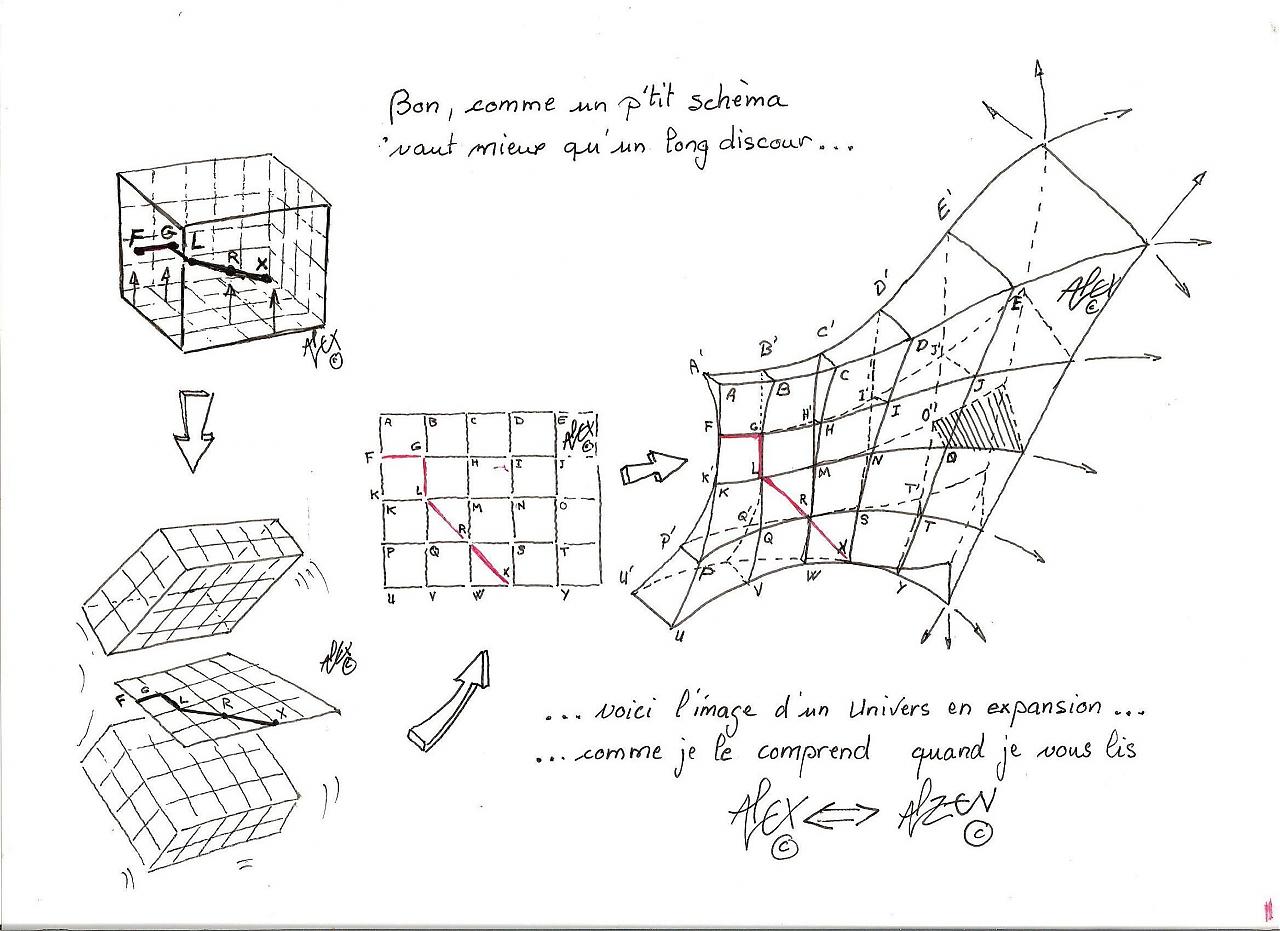 Bon, comme un p'tit schèma
vaut mieux qu'un long discour...
F G L R X
AlEX ©
A B C D E
AlEX ©
F G H I J
K L
K M N O
R
P Q S T
X
U V W Y
F G L R X
AlEX ©
E'
D'
C'
B'
A'
A B C D E
AlEX ©
J' J
I' I
F G H' H
O' O
K' K L M N
R
Q' S T' T
P' P Q X
U' V W Y
U
... voici l'image d'un Univers en expansion ...
... comme je le comprend quand je vous lis
AlEX © AlZEN ©